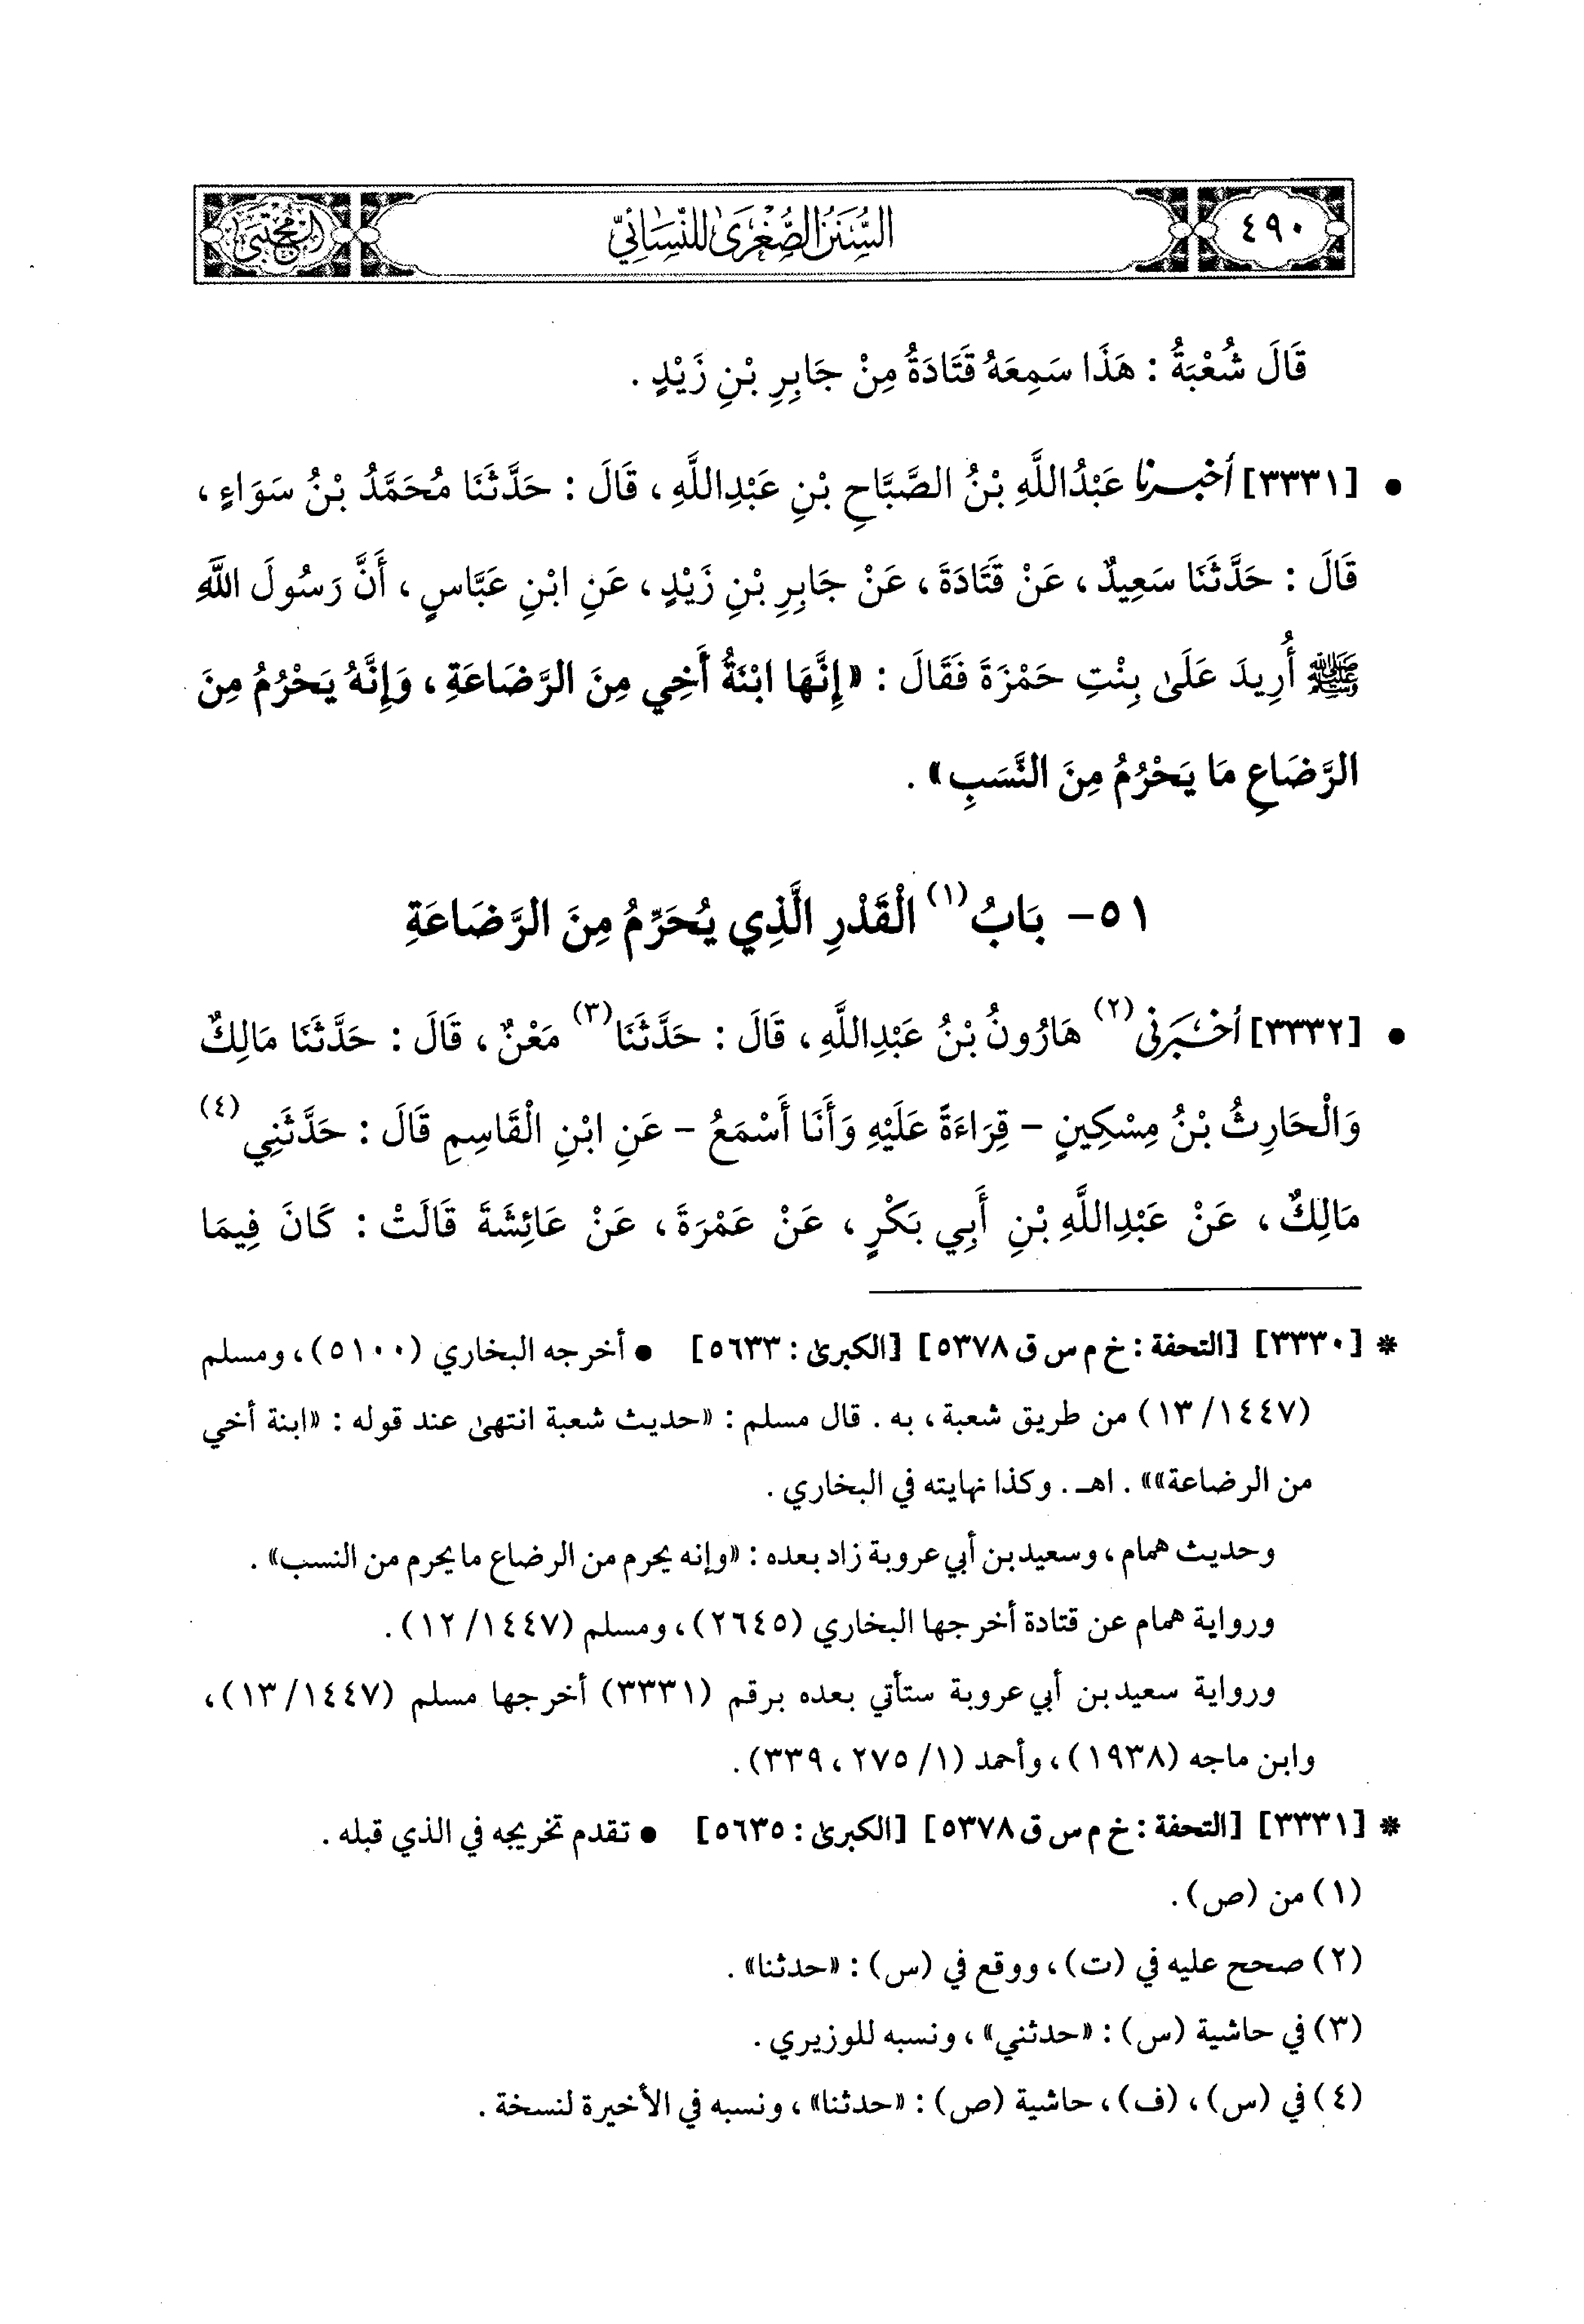 ٤٩٠
السُّنَنُ الصُّغْرَىٰ لِلنَّسَائِيِّ
المجتبى
قَالَ شُعْبَةُ : هَذَا سَمِعَهُ قَتَادَةُ مِنْ جَابِرِ بْنِ زَيْدٍ .
• [٣٣٣١] أخبرنا عَبْدُاللَّهِ بْنُ الصَّبَّاحِ بْنِ عَبْدِاللَّهِ ، قَالَ : حَدَّثَنَا مُحَمَّدُ بْنُ سَوَاءٍ ،
قَالَ : حَدَّثَنَا سَعِيدٌ ، عَنْ قَتَادَةَ ، عَنْ جَابِرِ بْنِ زَيْدٍ ، عَنِ ابْنِ عَبَّاسٍ ، أَنَّ رَسُولَ اللَّهِ
ﷺ أُرِيدَ عَلَىٰ بِنْتِ حَمْزَةَ فَقَالَ : «إِنَّهَا ابْنَةُ أَخِي مِنَ الرَّضَاعَةِ ، وَإِنَّهُ يَحْرُمُ مِنَ
الرَّضَاعِ مَا يَحْرُمُ مِنَ النَّسَبِ» .
٥١- بَابُ (١) الْقَدْرِ الَّذِي يُحَرِّمُ مِنَ الرَّضَاعَةِ
• [٣٣٣٢] أَخْبَرَنِي (٢) هَارُونُ بْنُ عَبْدِاللَّهِ ، قَالَ : حَدَّثَنَا (٣) مَعْنٌ ، قَالَ : حَدَّثَنَا مَالِكٌ
وَالْحَارِثُ بْنُ مِسْكِينٍ - قِرَاءَةً عَلَيْهِ وَأَنَا أَسْمَعُ - عَنِ ابْنِ الْقَاسِمِ قَالَ : حَدَّثَنِي (٤)
مَالِكٌ ، عَنْ عَبْدِاللَّهِ بْنِ أَبِي بَكْرٍ ، عَنْ عَمْرَةَ ، عَنْ عَائِشَةَ قَالَتْ : كَانَ فِيمَا
* [٣٣٣٠] [التحفة : خ م س ق ٥٣٧٨] [الكبرىٰ : ٥٦٣٣] • أخرجه البخاري (٥١٠٠) ، ومسلم
(١٣/١٤٤٧) من طريق شعبة ، به . قال مسلم : «حديث شعبة انتهىٰ عند قوله : «ابنة أخي
من الرضاعة»» . اهـ . وكذا نهايته في البخاري .
وحديث همام ، وسعيد بن أبي عروبة زاد بعده : «وإنه يحرم من الرضاع ما يحرم من النسب» .
ورواية همام عن قتادة أخرجها البخاري (٢٦٤٥) ، ومسلم (١٢/١٤٤٧) .
ورواية سعيد بن أبي عروبة ستأتي بعده برقم (٣٣٣١) أخرجها مسلم (١٣/١٤٤٧) ،
وابن ماجه (١٩٣٨) ، وأحمد (١/ ٢٧٥ ، ٣٣٩) .
* [٣٣٣١] [التحفة : خ م س ق ٥٣٧٨] [الكبرىٰ : ٥٦٣٥] • تقدم تخريجه في الذي قبله .
(١) من (ص) .
(٢) صحح عليه في (ت) ، ووقع في (س) : «حدثنا» .
(٣) في حاشية (س) : «حدثني» ، ونسبه للوزيري .
(٤) في (س) ، (ف) ، حاشية (ص) : «حدثنا» ، ونسبه في الأخيرة لنسخة .